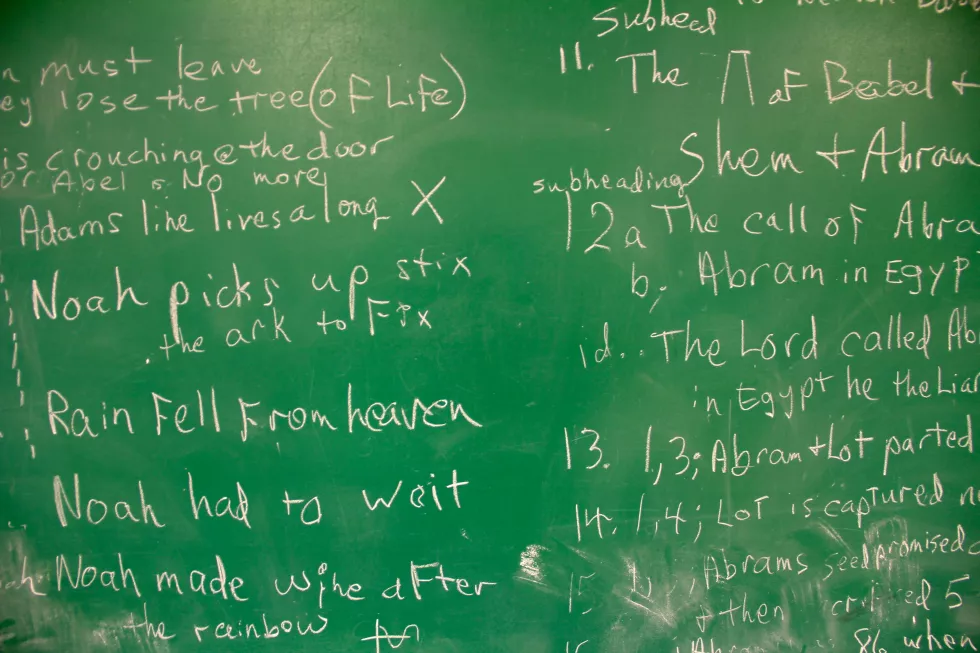 must leave
lose the tree (of Life)
is crouching @ the door
or Abel is No more
Adams line lives along X
Noah picks up stix
the ark to Fix
Rain Fell From heaven
Noah had to wait
Noah made wine aFter
the rainbow
Subhead
11. The Π of Babel +
Shem + Abram
subheading
12a The call of Abra
b. Abram in Egyp
id.. The Lord called Ab
in Egypt he the Liar
13. 1,3; Abram + Lot parted
14. 1,4; LoT is captured
15 Abrams seed promised
+ then ed 5
86 when